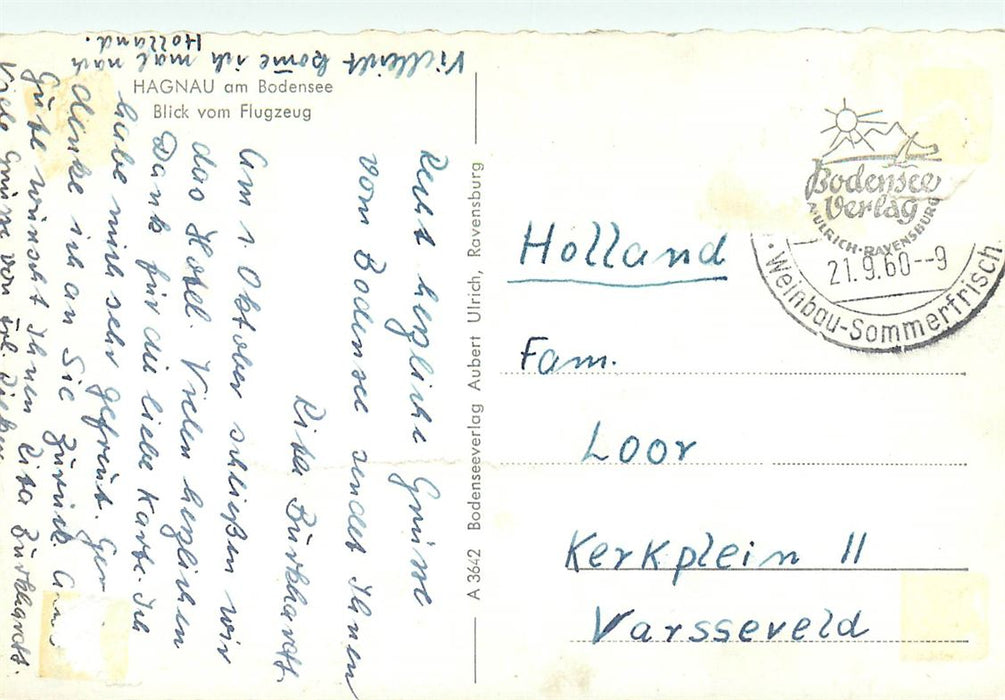 HAGNAU am Bodensee
Blick vom Flugzeug
Recht herzliche Grüsse
vom Bodensee sendet Ihnen
Rita Burkhardt.
Am 1. Oktober schließen wir
das Hotel. Vielen herzlichen
Dank für die liebe Karte. Ich
habe mich sehr gefreut. Gern
denke ich an Sie zurück. Alles
Gute wünscht Ihnen Rita Burkhardt.
Viele Grüsse von Frl.
Vielleicht kome ich mal nach
Holland.
A 3642 Bodenseeverlag Aubert Ulrich, Ravensburg
Bodensee
Verlag
A. ULRICH · RAVENSBURG
21.9.60--9
· Weinbau-Sommerfrisch
Holland
Fam.
Loor
Kerkplein 11
Varsseveld